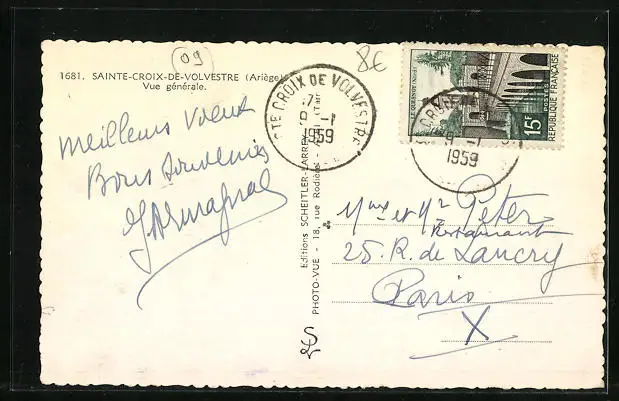 09
8€
1681. SAINTE-CROIX-DE-VOLVESTRE (Ariège)
Vue générale.
Meilleurs Voeux
Bons Souvenirs
STE CROIX DE VOLVESTRE
1959
LE QUESNOY (Nord)
15F
POSTES
REPUBLIQUE FRANÇAISE
1959
Editions SCHEITLER-LARREY
PHOTO-VUE - 18, rue Rodière
Mme et Mr Peters
Restaurant
25. R. de Lancry
Paris
X